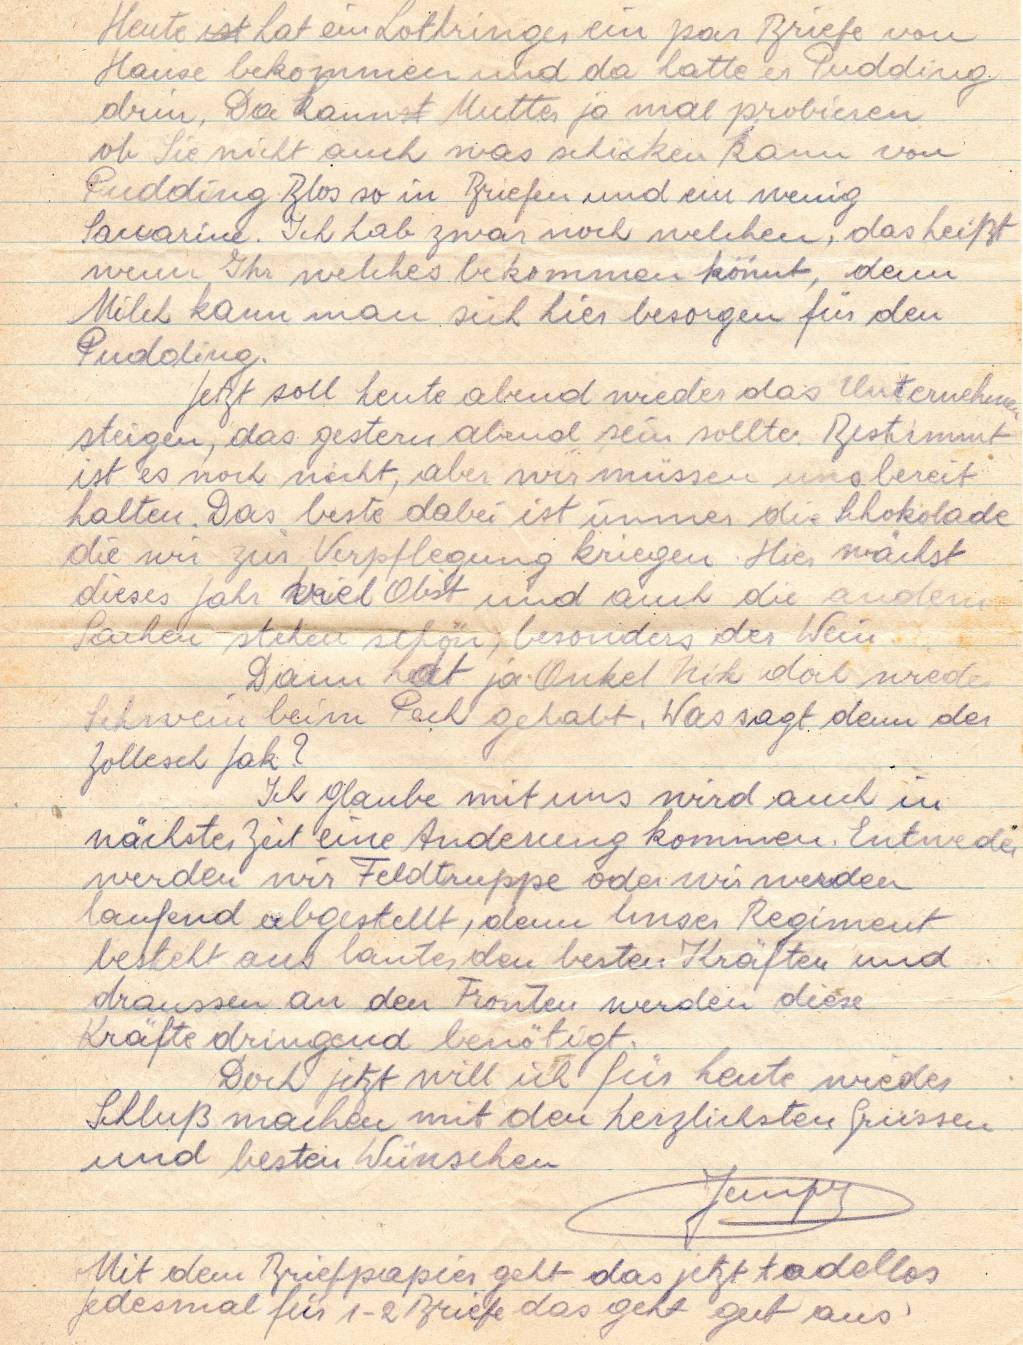 Heute ist hat ein Lothringer ein par Briefe von
Hause bekommen und da hatte er Pudding
drin. Da kannst Mutter ja mal probieren
ob Sie nicht auch was schicken kann von
Pudding Blos so in Briefen und ein wenig
Saccarine. Ich hab zwar noch welchen, das heißt
wenn Ihr welches bekommen könnt, denn
Milch kann man sich hier besorgen für den
Pudding.
Jetzt soll heute abend wieder das Unternehmen
steigen, das gestern abend sein sollte. Bestimmt
ist es noch nicht, aber wir müssen uns bereit
halten. Das beste dabei ist immer die Schokolade
die wir zur Verpflegung kriegen. Hier wächst
dieses Jahr viel Obst und auch die andern
Sachen stehen schön, besonders der Wein.
Dann hat ja Onkel Nik doch wieder
Schwein beim Pech gehabt. Was sagt denn der
Zollesch Jak?
Ich glaube mit uns wird auch in
nächster Zeit eine Anderung kommen. Entweder
werden wir Feldtruppe oder wir werden
laufend abgestellt, denn unser Regiment
besteht aus lauter den besten Kräften und
draussen an den Fronten werden diese
Kräfte dringend benötigt.
Doch jetzt will ich für heute wieder
Schluß machen mit den herzlichsten Grüssen
und besten Wünschen
Jempy
Mit dem Briefpapier geht das jetzt tadellos
Jedesmal für 1-2 Briefe das geht gut aus